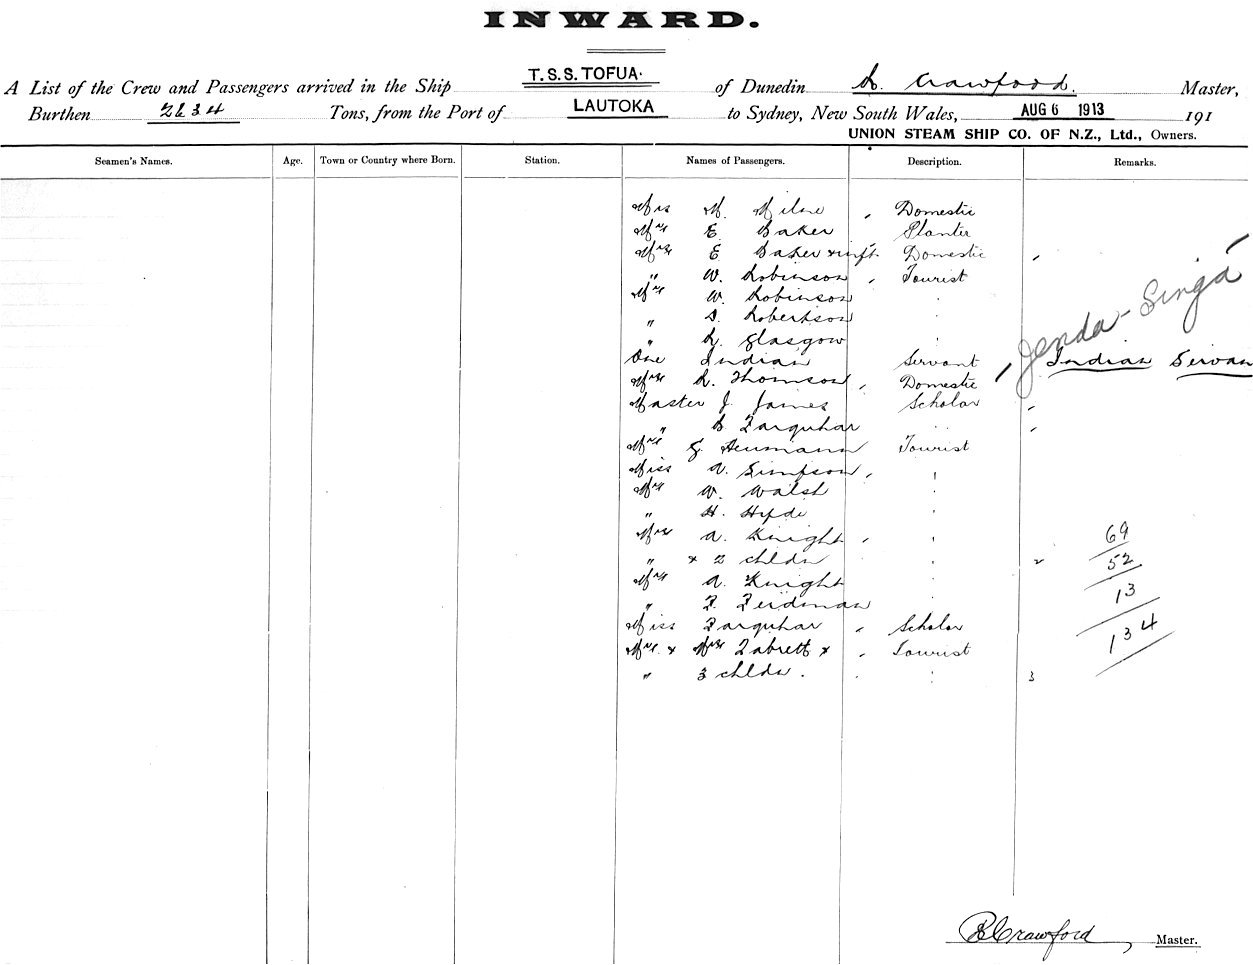 INWARD.
A List of the Crew and Passengers arrived in the Ship T.S.S. TOFUA. of Dunedin Crawford. Master,
Burthen 2634 Tons, from the Port of LAUTOKA to Sydney, New South Wales, AUG 6 1913 191
UNION STEAM SHIP CO. OF N.Z., Ltd., Owners.
Seamen's Names. Age. Town or Country where Born. Station. Names of Passengers. Description. Remarks.
M. Milne Domestic
Mr E Baker Planter
Mrs E Baker & inft. Domestic
" W. Robinson , Tourist
Mr W. Robinson "
" Robertson "
" Glasgow "
One Indian Servant Jenda-Singa Indian Servan
Mrs R. Thomson , Domestic
Master J. James Scholar
" Farquhar "
Mr Neumann Tourist
Miss A. Simpson , "
Mr W. Walsh "
" H. Hyde "
Mrs A. Knight , " 69
" & 2 chldn " 2 52
Mr A. Knight " 13
" F. Ferdman "
Miss Farquhar , Scholar 134
Mr. & Mrs Fabrett & , Tourist
" 3 chldn . " 3
Crawford Master.